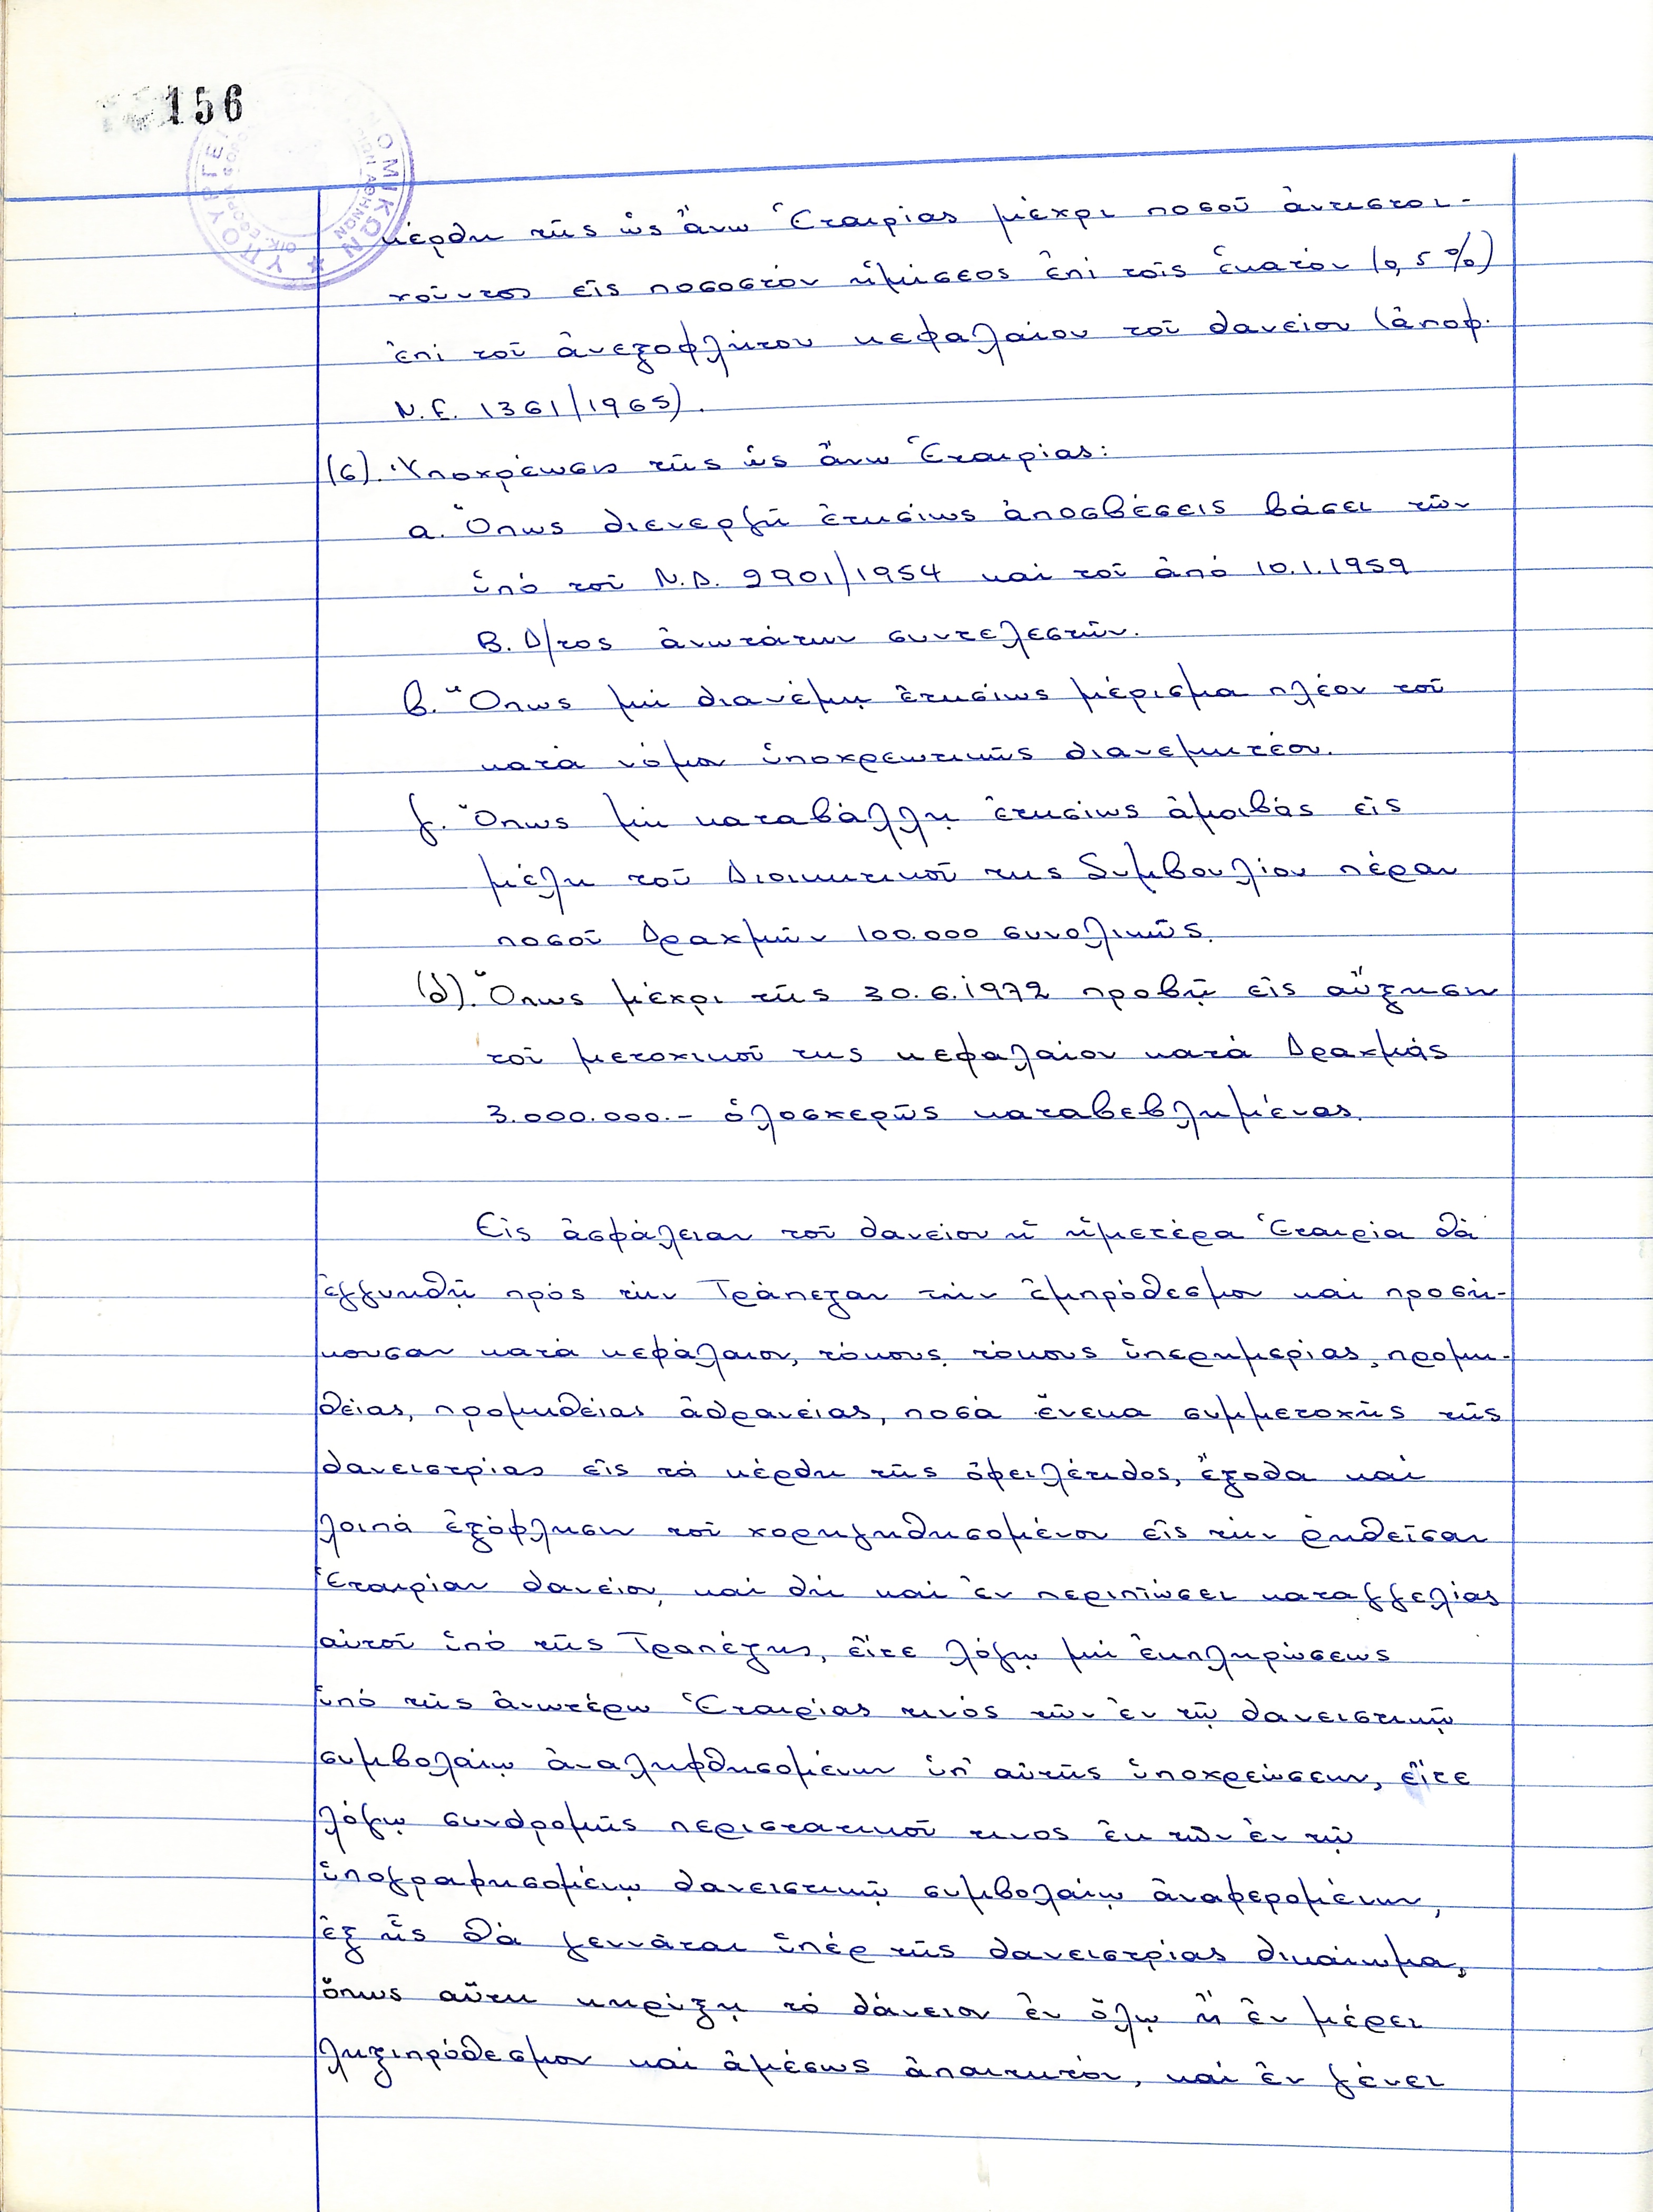 156
κέρδη τῆς ὡς ἄνω Ἑταιρίας μέχρι ποσοῦ ἀντιστοι-
χοῦντος εἰς ποσοστόν ἡμίσεος ἐπί τοῖς ἑκατόν (0,5%)
ἐπί τοῦ ἀνεξοφλήτου κεφαλαίου τοῦ δανείου (ἀποφ.
Ν.Ε. 1361/1965).
(6). Ὑποχρέωσιν τῆς ὡς ἄνω Ἑταιρίας:
α. Ὅπως διενεργῆ ἐτησίως ἀποσβέσεις βάσει τῶν
ὑπό τοῦ Ν.Δ. 2901/1954 καί τοῦ ἀπό 10.1.1959
Β. Δ/τος ἀνωτάτων συντελεστῶν.
β. Ὅπως μή διανέμῃ ἐτησίως μέρισμα πλέον τοῦ
κατά νόμον ὑποχρεωτικῶς διανεμητέου.
γ. Ὅπως μή καταβάλλῃ ἐτησίως ἀμοιβάς εἰς
μέλη τοῦ Διοικητικοῦ της Συμβουλίου πέραν
ποσοῦ Δραχμῶν 100.000 συνολικῶς.
(δ). Ὅπως μέχρι τῆς 30.6.1972 προβῇ εἰς αὔξησιν
τοῦ μετοχικοῦ της κεφαλαίου κατά Δραχμάς
3.000.000.- ὁλοσχερῶς καταβεβλημένας.
Εἰς ἀσφάλειαν τοῦ δανείου ἡ ἡμετέρα Ἑταιρία θά
ἐγγυηθῇ πρός τήν Τράπεζαν τήν ἐμπρόθεσμον καί προσή-
κουσαν κατά κεφάλαιον, τόκους, τόκους ὑπερημερίας, προμη-
θείας, προμηθείας ἀδρανείας, ποσά ἕνεκα συμμετοχῆς τῆς
δανειστρίας εἰς τά κέρδη τῆς ὀφειλέτιδος, ἔξοδα καί
λοιπά ἐξόφλησιν τοῦ χορηγηθησομένου εἰς τήν ῥηθεῖσαν
Ἑταιρίαν δανείου, καί δή καί ἐν περιπτώσει καταγγελίας
αὐτοῦ ὑπό τῆς Τραπέζης, εἴτε λόγῳ μή ἐκπληρώσεως
ὑπό τῆς ἀνωτέρω Ἑταιρίας τινός τῶν ἐν τῷ δανειστικῷ
συμβολαίῳ ἀναληφθησομένων ὑπ' αὐτῆς ὑποχρεώσεων, εἴτε
λόγῳ συνδρομῆς περιστατικοῦ τινος ἐκ τῶν ἐν τῷ
ὑπογραφησομένῳ δανειστικῷ συμβολαίῳ ἀναφερομένων,
ἐξ ἧς θά γεννᾶται ὑπέρ τῆς δανειστρίας δικαίωμα,
ὅπως αὕτη κηρύξῃ τό δάνειον ἐν ὅλῳ ἤ ἐν μέρει
ληξιπρόθεσμον καί ἀμέσως ἀπαιτητόν, καί ἐν γένει